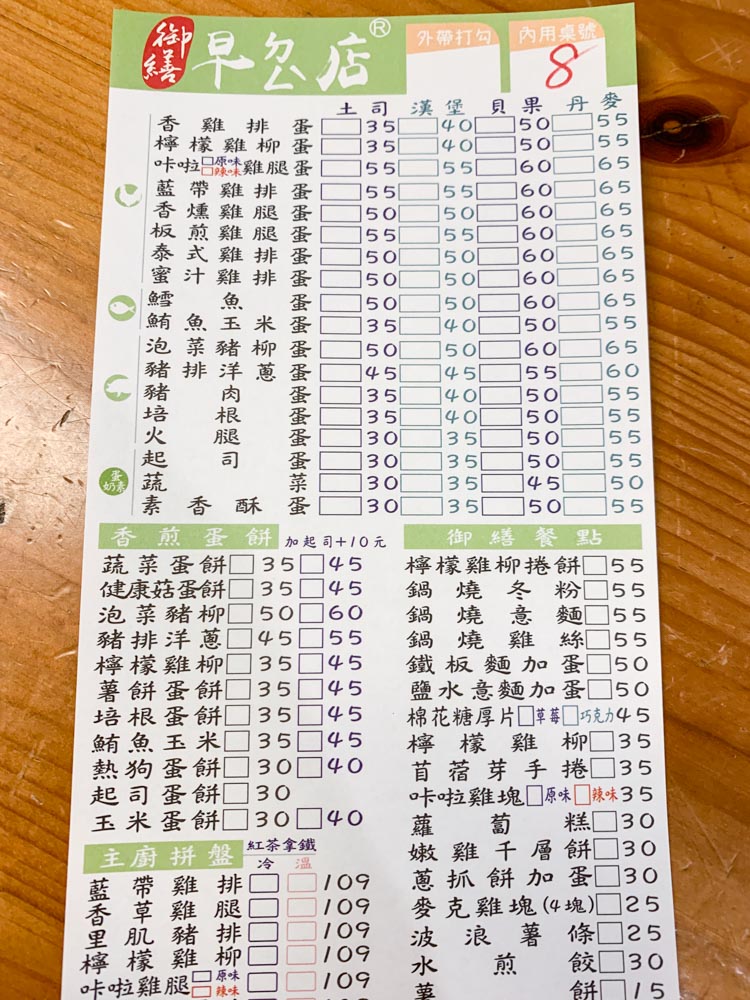 御繕 早 店®
外帶打勾 內用桌號
8
土司 漢堡 貝果 丹麥
香雞排蛋 □35 □40 □50 □55
檸檬雞柳蛋 □35 □40 □50 □55
咔啦□原味□辣味雞腿蛋 □55 □55 □60 □65
藍帶雞排蛋 □55 □55 □60 □65
香燻雞腿蛋 □50 □50 □60 □65
板煎雞腿蛋 □55 □55 □60 □65
泰式雞排蛋 □50 □50 □60 □65
蜜汁雞排蛋 □50 □50 □60 □65
鱈魚蛋 □50 □50 □60 □65
鮪魚玉米蛋 □35 □40 □50 □55
泡菜豬柳蛋 □50 □50 □60 □65
豬排洋蔥蛋 □45 □45 □55 □60
豬肉蛋 □35 □40 □50 □55
培根蛋 □35 □40 □50 □55
火腿蛋 □30 □35 □50 □55
起司蛋 □30 □35 □50 □55
蛋奶素
蔬菜 □30 □35 □45 □50
素香酥蛋 □30 □35 □50 □55
香煎蛋餅 加起司+10元
蔬菜蛋餅□35□45
健康菇蛋餅□35□45
泡菜豬柳□50□60
豬排洋蔥□45□55
檸檬雞柳□35□45
薯餅蛋餅□35□45
培根蛋餅□35□45
鮪魚玉米□35□45
熱狗蛋餅□30□40
起司蛋餅□30
玉米蛋餅□30□40
主廚拼盤 紅茶拿鐵
冷 溫
藍帶雞排□□109
香草雞腿□□109
里肌豬排□□109
檸檬雞柳□□109
咔啦雞腿□原味□辣味□□109
御繕餐點
檸檬雞柳捲餅□55
鍋燒冬粉□55
鍋燒意麵□55
鍋燒雞絲□55
鐵板麵加蛋□50
鹽水意麵加蛋□50
棉花糖厚片□草莓□巧克力45
檸檬雞柳□35
苜蓿芽手捲□35
咔啦雞塊□原味□辣味35
蘿蔔糕□30
嫩雞千層餅□30
蔥抓餅加蛋□30
麥克雞塊(4塊)□25
波浪薯條□25
水煎餃□30
薯餅□15